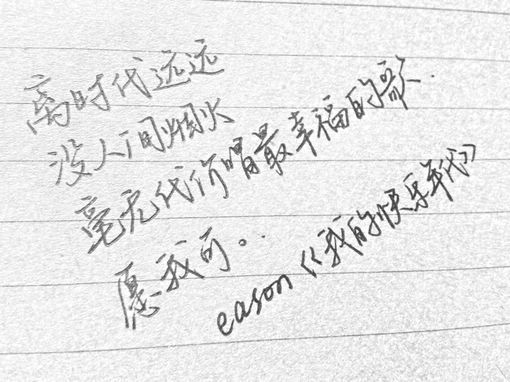 离时代远远
没人间烟火
毫无代价唱最幸福的歌.
愿我可。.
eason《我的快乐年代》